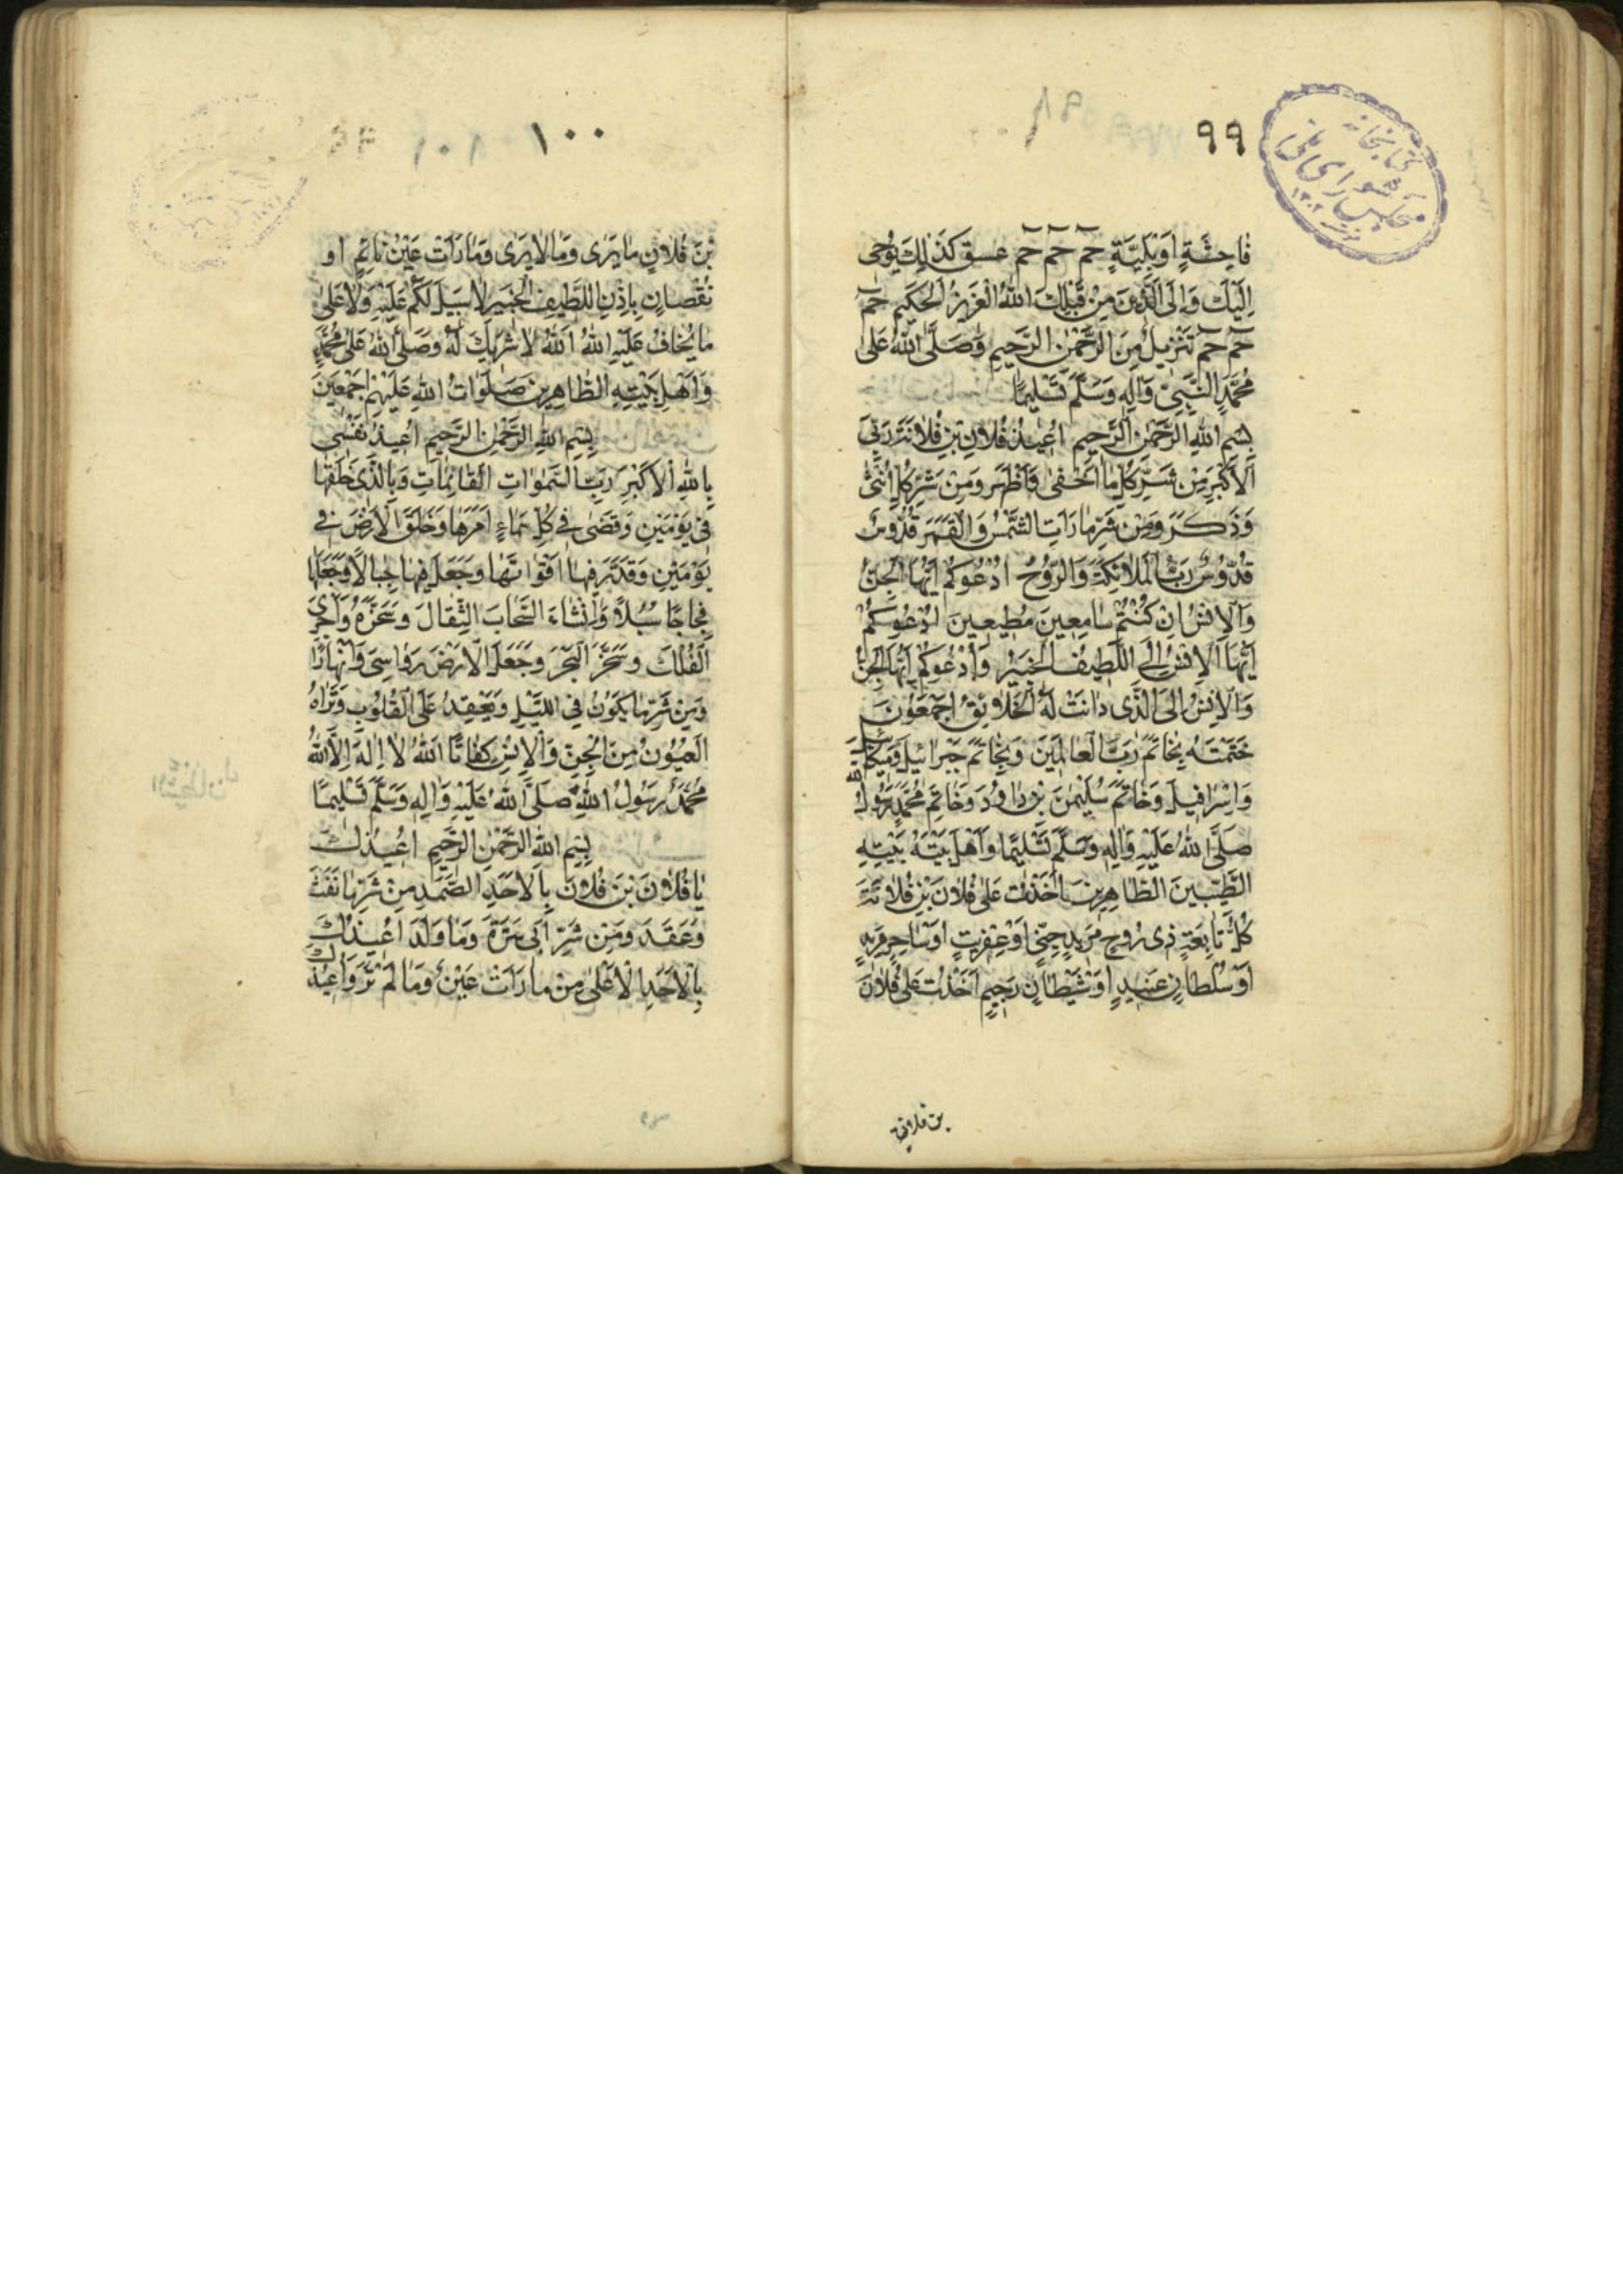 ٩٩
كتابخانه
مجلس شورای ملی
فٰاحِشَةٍ اَوْبَلِيَّةٍ حٓمٓ حٓمٓ حٓمٓ عسق كَذٰلِكَ يُوحٰى
اِلَيْكَ وَاِلَى الَّذينَ مِنْ قَبْلِكَ اللّٰهُ الْعَزيزُ الْحَكيمِ حٓمٓ
حٓمٓ حٓمٓ تَنْزيلٌ مِنَ الرَّحْمٰنِ الرَّحيمِ وَصَلَّى اللّٰهُ عَلٰى
مُحَمَّدٍ النَّبِيِّ وَاٰلِهِ وَسَلَّمَ تَسْليمًا
بِسْمِ اللّٰهِ الرَّحْمٰنِ الرَّحيمِ اُعيذُ فُلانِ بْنِ فُلانَةَ بِرَبِّىَ
الْاَكْبَرِ مِنْ شَرِّ كُلِّ مٰا اَخْفٰى وَاَظْهَرَ وَمِنْ شَرِّ كُلِّ اُنْثٰى
وَذَكَرٍ وَمِنْ شَرِّ مٰا رَاَتِ الشَّمْسُ وَالْقَمَرَ قُدُّوسٌ
قُدُّوسٌ رَبُّ الْمَلائِكَةِ وَالرُّوحُ اَدْعُوكُمْ اَيُّهَا الْجِنُّ
وَالْاِنْسُ اِنْ كُنْتُمْ سٰامِعينَ مُطيعينَ اَدْعُوكُمْ
اَيُّهَا الْاِنْسُ اِلَى اللَّطيفُ الْخَبيرُ وَاَدْعُوكُمْ اَيُّهَا الْجِنُّ
وَالْاِنْسُ اِلَى الَّذى دٰانَتْ لَهُ الْخَلٰايِقُ اَجْمَعُونَ
خَتَمْتَهُ بِخٰاتَمِ رَبِّ الْعٰالَمينَ وَبِخٰاتَمِ جَبْرائيلَ وَميكائيلَ
وَاِسْرٰافيلَ وَخٰاتَمِ سُلَيْمٰنَ بْنِ دٰاوُدَ وَخٰاتَمِ مُحَمَّدٍ رَسُولِ اللّٰه
صَلَّى اللّٰهُ عَلَيْهِ وَاٰلِهِ وَسَلَّمَ تَسْليمًا وَاَهْلِ بَيْتَهُ بَيْتِهِ
الطَّيِّبينَ الطّٰاهِرينَ اَخَذْتُ عَلٰى فُلانَ بْنِ فُلانَةَ
كُلُّ تٰابِعَةٍ ذى رُوحٍ مَريدٍ جِنّيٍ اَوْ عِفْريتٍ اَوْ سٰاحِرٍ مَريدٍ
اَوْ سُلْطٰانٍ عَنيدٍ اَوْ شَيْطٰانٍ رَجيمٍ اَخَذْتُ عَلٰى فُلانَ
بن فلانة
١٠٠
بْنَ فُلانٍ مٰا يَرٰى وَمٰا لايَرٰى وَمٰا رَاَتْ عَيْنُ نٰائِمٍ او
نُقْصٰانٍ بِاِذْنِ اللَّطيفِ الْخَبيرِ لاسَبيلَ لَكُمْ عَلَيْهِ وَلا عَلٰى
مٰا يُخٰافُ عَلَيْهِ اللّٰهُ اَللّٰهُ لا شَريكَ لَهُ وَصَلَّى اللّٰهُ عَلٰى مُحَمَّدٍ
وَاَهْلِ بَيْتِهِ الطّٰاهِرينَ صَلَوٰاتُ اللّٰهِ عَلَيْهِمْ اَجْمَعينَ
بِسْمِ اللّٰهِ الرَّحْمٰنِ الرَّحيمِ اُعيذُ نَفْسى
بِاللّٰهِ الْاَكْبَرِ رَبِّ السَّمٰوٰاتِ الْقٰائِمٰاتِ وَبِالَّذى خَلَقَهٰا
فى يَوْمَيْنِ وَقَضٰى فى كُلِّ سَمٰاءٍ اَمْرَهٰا وَخَلَقَ الْاَرْضَ فى
يَوْمَيْنِ وَقَدَّرَ فيهٰا اَقْوٰاتَهٰا وَجَعَلَ فيهٰا جِبٰالًا وَجَعَلَهٰا
فِجٰاجًا سُبُلًا وَاَنْشَاءَ السَّحٰابَ الثِّقٰالَ وَسَخَّرَهُ وَاَجْرَى
الْفُلْكَ وسَخَّرَ الْبَحْرَ وجَعَلَ الْاَرْضَ رَوٰاسِىَ وَاَنْهٰارًا
وَمِنْ شَرِّ مٰا يَكُونُ فِي اللَّيْلِ وَيَعْقِدُ عَلَى الْقُلُوبِ وَتَرٰاهُ
الْعُيُونُ مِنَ الْجِنِّ وَالْاِنْسِ كَفٰانَا اللّٰهُ لا اِلٰهَ اِلاَّ اللّٰهُ
مُحَمَّدٌ رَسُولُ اللّٰهِ صَلَّى اللّٰهُ عَلَيْهِ وَاٰلِهِ وَسَلَّمَ تَسْليمًا
بِسْمِ اللّٰهِ الرَّحْمٰنِ الرَّحيمِ اُعيذُكَ
يٰا فُلانَ بْنَ فُلانَ بِالْاَحَدِ الصَّمَدِ مِنْ شَرِّ مٰا نَفَثَ
وَعَقَدَ ومِنْ شَرِّ اَبى مَرَّةَ وَمٰا وَلَدَ اُعيذُكَ
بِالْاَحَدِ الْاَعْلٰى مِنْ مٰا رَاَتْ عَيْنٌ وَمٰا لَمْ تَرَ وَاُعيذُكَ